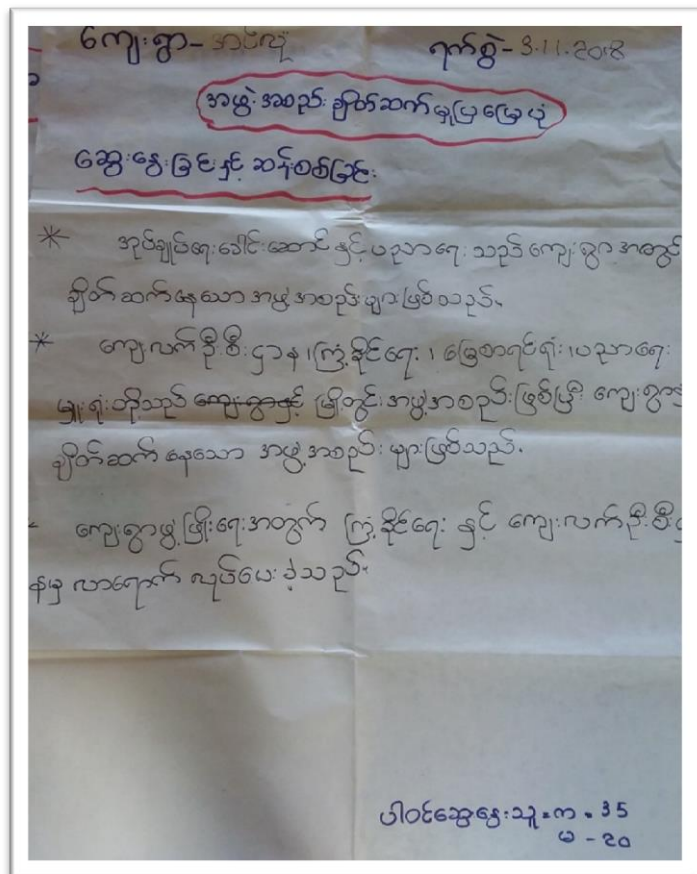 ကျေးရွာ - အင်လုံ ရက်စွဲ - 3.11.2018
အဖွဲ့အစည်းချိတ်ဆက်မှုပြမြေပုံ
ဆွေးနွေးခြင်းနှင့် ဆန်းစစ်ခြင်း
* အုပ်ချုပ်ရေးခေါင်းဆောင် နှင့် ပညာရေး သည် ကျေးရွာ အတွင်း
ချိတ်ဆက်နေသော အဖွဲ့အစည်းများဖြစ်သည်။
* ကျေးလက်ဦးစီးဌာန၊ ကြံ့ခိုင်ရေး၊ မြေစာရင်းရုံး၊ ပညာရေး
မှူးရုံးတို့သည် ကျေးရွာနှင့် မြို့တွင်းအဖွဲ့အစည်းဖြစ်ပြီး ကျေးရွာ
ချိတ်ဆက်နေသော အဖွဲ့အစည်းများဖြစ်သည်။
- ကျေးရွာဖွံ့ဖြိုးရေးအတွက် ကြံ့ခိုင်ရေး နှင့် ကျေးလက်ဦးစီးဌ
နမှ လာရောက် လုပ်ပေးခဲ့သည်။
ပါဝင်ဆွေးနွေးသူ = က - 35
မ - 20